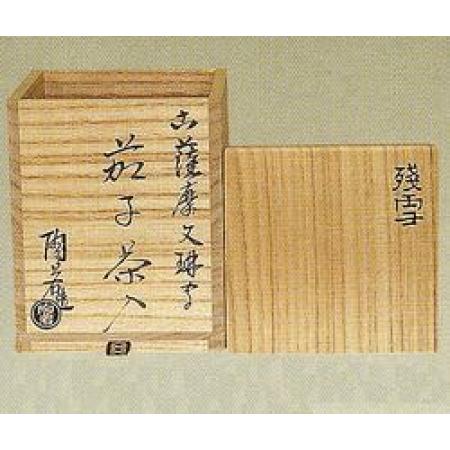 古薩摩文琳写
茄子茶入
陶兵雄
残雪